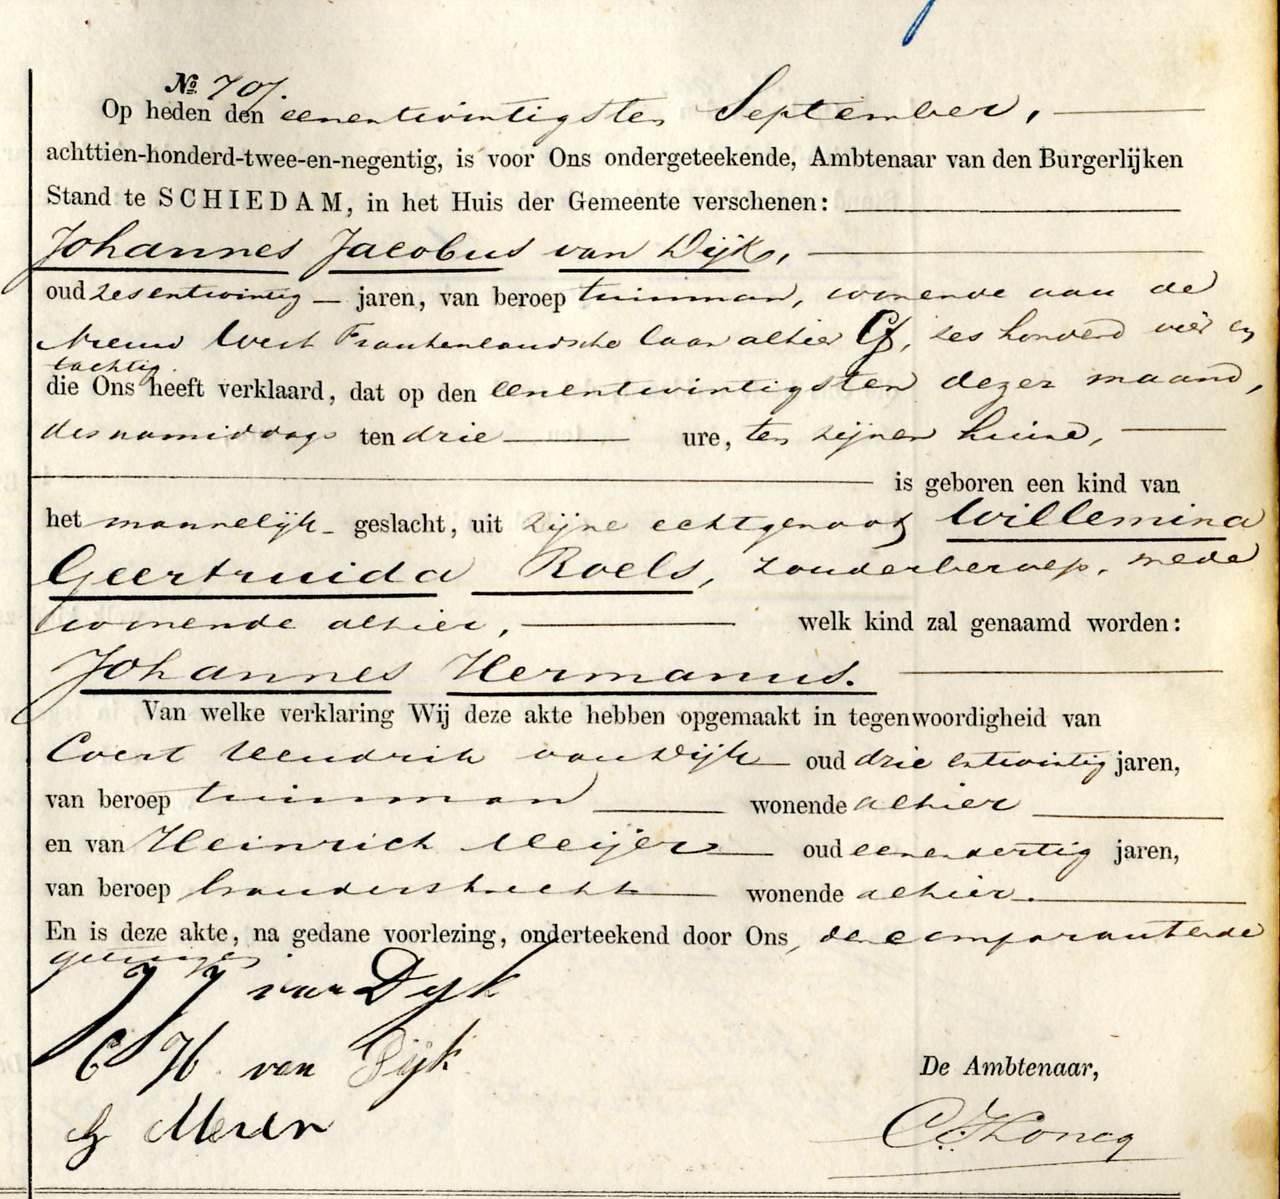 No 707.
Op heden den eenentwintigsten September,
achttien-honderd-twee-en-negentig, is voor Ons ondergeteekende, Ambtenaar van den Burgerlijken
Stand te SCHIEDAM, in het Huis der Gemeente verschenen:
Johannes Jacobus van Dijk,
oud zesentwintig jaren, van beroep tuinman, wonende aan de
Nieuw West Frankenlandsche laan alhier zes honderd vier en
tachtig.
die Ons heeft verklaard, dat op den eenentwintigsten dezer maand,
des namiddags ten drie ure, ten zijnen huize,
is geboren een kind van
het mannelijk geslacht, uit zijne echtgenoot Willemina
Geertruida Roels, zonder beroep, mede
wonende alhier, welk kind zal genaamd worden:
Johannes Hermanus.
Van welke verklaring Wij deze akte hebben opgemaakt in tegenwoordigheid van
Coert Hendrik van Dijk oud drie entwintig jaren,
van beroep tuinman wonende alhier
en van Heinrich Meijer oud eenendertig jaren,
van beroep brandersknecht wonende alhier.
En is deze akte, na gedane voorlezing, onderteekend door Ons, den comparant en de
getuigen
J J van Dyk
C H. van Dijk
De Ambtenaar,